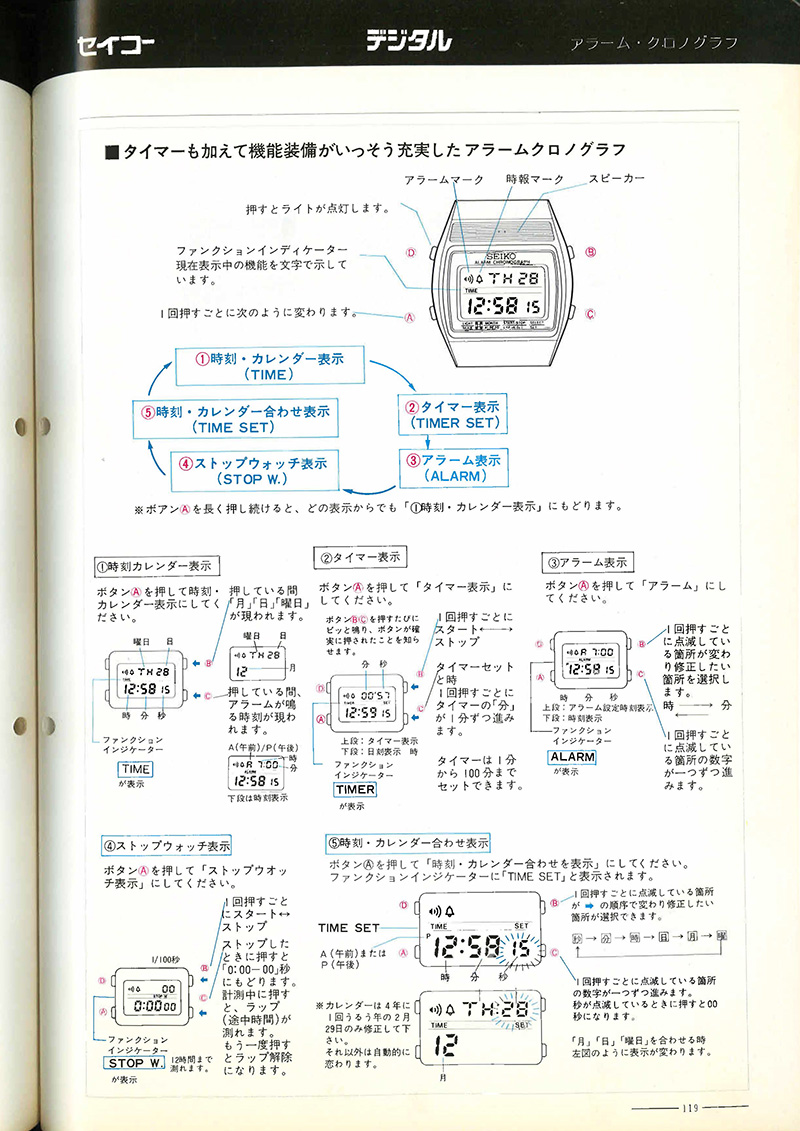 セイコー
デジタル
アラーム・クロノグラフ
■タイマーも加えて機能装備がいっそう充実したアラームクロノグラフ
アラームマーク
時報マーク
スピーカー
押すとライトが点灯します。
ファンクションインディケーター
現在表示中の機能を文字で示して
います。
1回押すごとに次のように変わります。
D
B
A
C
SEIKO
ALARM CHRONOGRAPH
TH 28
TIME
12:58 15
①時刻・カレンダー表示
(TIME)
②タイマー表示
(TIMER SET)
③アラーム表示
(ALARM)
④ストップウォッチ表示
(STOP W.)
⑤時刻・カレンダー合わせ表示
(TIME SET)
※ボアンⒶを長く押し続けると、どの表示からでも「①時刻・カレンダー表示」にもどります。
①時刻カレンダー表示
ボタンⒶを押して時刻・
カレンダー表示にしてく
ださい。
曜日 日
TH 28
TIME
12:58 15
時 分 秒
B
C
ファンクション
インジケーター
TIME
が表示
押している間
「月」「日」「曜日」
が現われます。
曜日 日
TH 28
12
月
押している間、
アラームが鳴
る時刻が現わ
れます。
A(午前)/P(午後)
時
分
A 7:00
ALARM
12:58 15
下段は時刻表示
②タイマー表示
ボタンⒶを押して「タイマー表示」に
してください。
ボタンⒷⒸを押すたびに
ピッと鳴り、ボタンが確
実に押されたことを知ら
せます。
分 秒
D
A
B
C
00'57
TIMER SET
12:59 15
上段：タイマー表示
下段：日刻表示 時
ファンクション
インジケーター
TIMER
が表示
1回押すごとに
スタート←→
ストップ
タイマーセット
と時
1回押すごとに
タイマーの「分」
が1分ずつ進み
ます。
タイマーは1分
から100分まで
セットできます。
③アラーム表示
ボタンⒶを押して「アラーム」にし
てください。
D
A
B
C
A 7:00
ALARM
12:58 15
時 分 秒
上段：アラーム設定時刻表示
下段：時刻表示
ファンクション
インジケーター
ALARM
が表示
1回押すごと
に点減してい
る箇所が変わ
り修正したい
箇所を選択し
ます。
時 ←→ 分
1回押すごと
に点減してい
る箇所の数字
が一つずつ進
みます。
④ストップウォッチ表示
ボタンⒶを押して「ストップウオッ
チ表示」にしてください。
1/100秒
D
A
B
C
00
STOP W.
0:00 00
ファンクション
インジケーター
STOP W.
が表示
12時間まで
測れます。
1回押すごと
にスタート↔
ストップ
ストップした
ときに押すと
「0:00－00」秒
にもどります。
計測中に押す
と、ラップ
(途中時間)が
測れます。
もう一度押す
とラップ解除
になります。
⑤時刻・カレンダー合わせ表示
ボタンⒶを押して「時刻・カレンダー合わせを表示」にしてください。
ファンクションインジケーターに「TIME SET」と表示されます。
TIME SET
A(午前)または
P(午後)
D
A
B
C
TIME SET
P
12:58 15
時 分 秒
1回押すごとに点減している箇所
が ➡ の順序で変わり修正したい
箇所が選択できます。
秒→分→時→日→月→曜
1回押すごとに点減している箇所
の数字が一つずつ進みます。
秒が点減しているときに押すと00
秒になります。
※カレンダーは4年に
1回うるう年の2月
29日のみ修正して下
さい。
それ以外は自動的に
恋わります。
TH:28
TIME SET
12
月
「月」「日」「曜日」を合わせる時
左図のように表示が変わります。
119